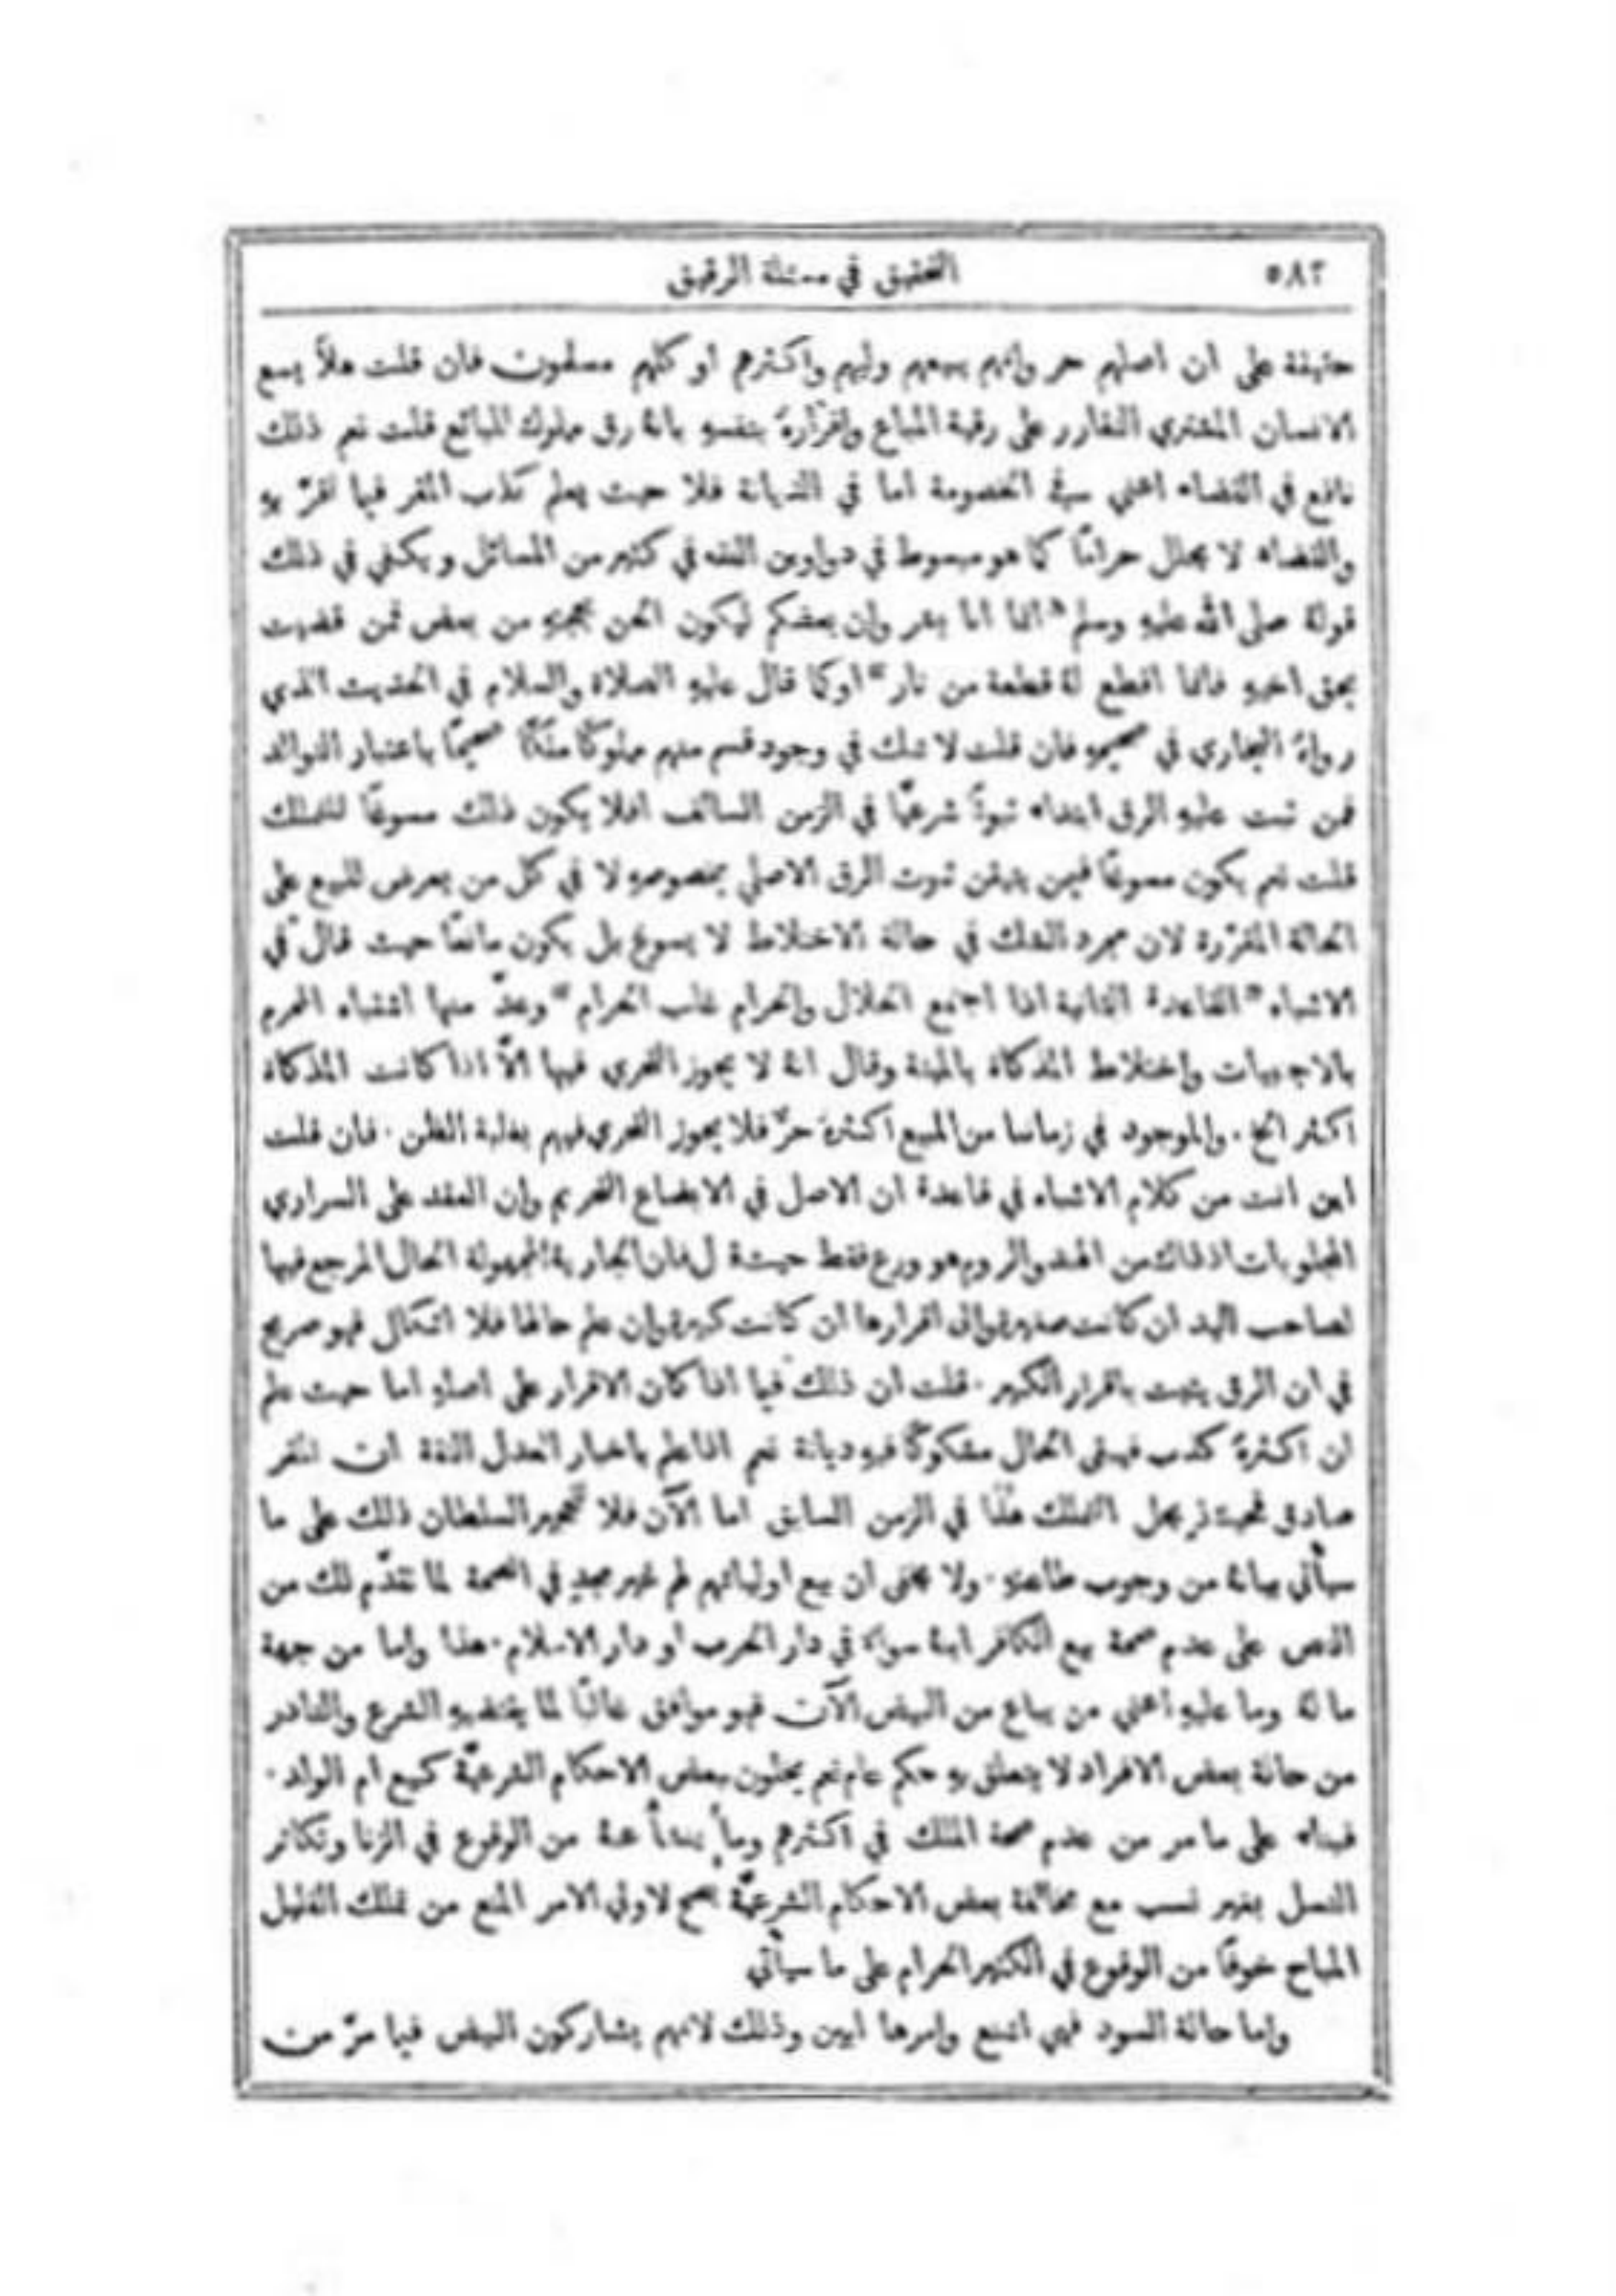 ٥٨٢ التحقيق في مسئلة الرقيق
حثيثة على ان اصلهم حر وانهم يبيعهم وليهم واكثرهم او كلهم مسلمون فان قلت هلاّ يسع
الانسان المشتري التقارر على رقية المباع واقرارهُ بنفسهِ بانهُ رق مملوك للبائع قلت نعم ذلك
نافع في القضاء اعني في الخصومة اما في الديانة فلا حيث يعلم كذب المقر فيما اقرّ بهِ
والقضاء لا يحلل حراماً كما هو مبسوط في دواوين الفقه في كثير من المسائل ويكفي في ذلك
قولهُ صلى الله عليهِ وسلم "انما انا بشر وان بعضكم ليكون الحن بحجتهِ من بعض فمن قضيت
بحق اخيهِ فانما اقطع لهُ قطعة من نار" اوكما قال عليهِ الصلاة والسلام في الحديث الذي
رواهُ البخاري في صحيحهِ فان قلت لا شك في وجود قسم منهم مملوكاً ملكاً صحيحاً باعتبار التوالد
فمن ثبت عليهِ الرق ابتداء ثبوتاً شرعيّاً في الزمن السالف افلا يكون ذلك مسوغاً للتملك
قلت نعم يكون مسوغاً فيمن يتيقن ثبوت الرق الاصلي بخصوصهِ لا في كل من يعرض للبيع على
الحالة المقرّرة لان مجرد الشك في حالة الاختلاط لا يسوغ بل يكون مانعاً حيث قال في
الاشباه "القاعدة الثانية اذا اجتمع الحلال والحرام غلب الحرام" وعدّ منها اشتباه المحرم
بالاجنبيات واختلاط المذكاة بالميتة وقال انهُ لا يجوز التحري فيها الاّ اذا كانت المذكاة
اكثر الخ. والموجود في زماننا من المبيع اكثرهُ حرٌّ فلا يجوز التحري فيهم بغلبة الظن. فان قلت
اين انت من كلام الاشباه في قاعدة ان الاصل في الابضاع التحريم وان العقد على السراري
المجلوبات اذ ذاك من الهند والروم هو ورع فقط حيث قال فان الجارية المجهولة الحال المرجع فيها
لصاحب اليد ان كانت صغيرة والى اقرارها ان كانت كبيرة وان علم حالها فلا اشكال فهو صريح
في ان الرق يثبت باقرار الكبير. قلت ان ذلك فيما اذا كان الاقرار على اصلهِ اما حيث علم
ان اكثرهُ كذب فيبقى الحال مشكوكاً فيهِ ديانة نعم اذا علم باخبار العدل الثقة ان المقر
صادق فحينئذٍ يحل التملك هذا في الزمن السابق اما الآن فلا لتحجير السلطان ذلك على ما
سيأتي بيانهُ من وجوب طاعتهِ. ولا يخفى ان بيع اوليائهم لهم غير مجدٍ في الصحة لما تقدّم لك من
النص على عدم صحة بيع الكافر ابنهُ سواء في دار الحرب او دار الاسلام. هذا واما من جهة
ما لهُ وما عليهِ اعني من يباع من البيض الآن فهو موافق غالباً لما يقتضيهِ الشرع والنادر
من حالة بعض الافراد لا يتعلق بهِ حكم عام نعم يخلون ببعض الاحكام الشرعيّة كبيع ام الولد.
فبناء على ما مر من عدم صحة الملك في اكثرهم وما ينشأ عنهُ من الوقوع في الزنا وتكاثر
النسل بغير نسب مع مخالفة بعض الاحكام الشرعيّة يصح لاولي الامر المنع من تملك القليل
المباح خوفاً من الوقوع في الكثير الحرام على ما سيأتي
واما حالة السود فهي اشنع وامرها ابين وذلك لانهم يشاركون البيض فيما مرّ من